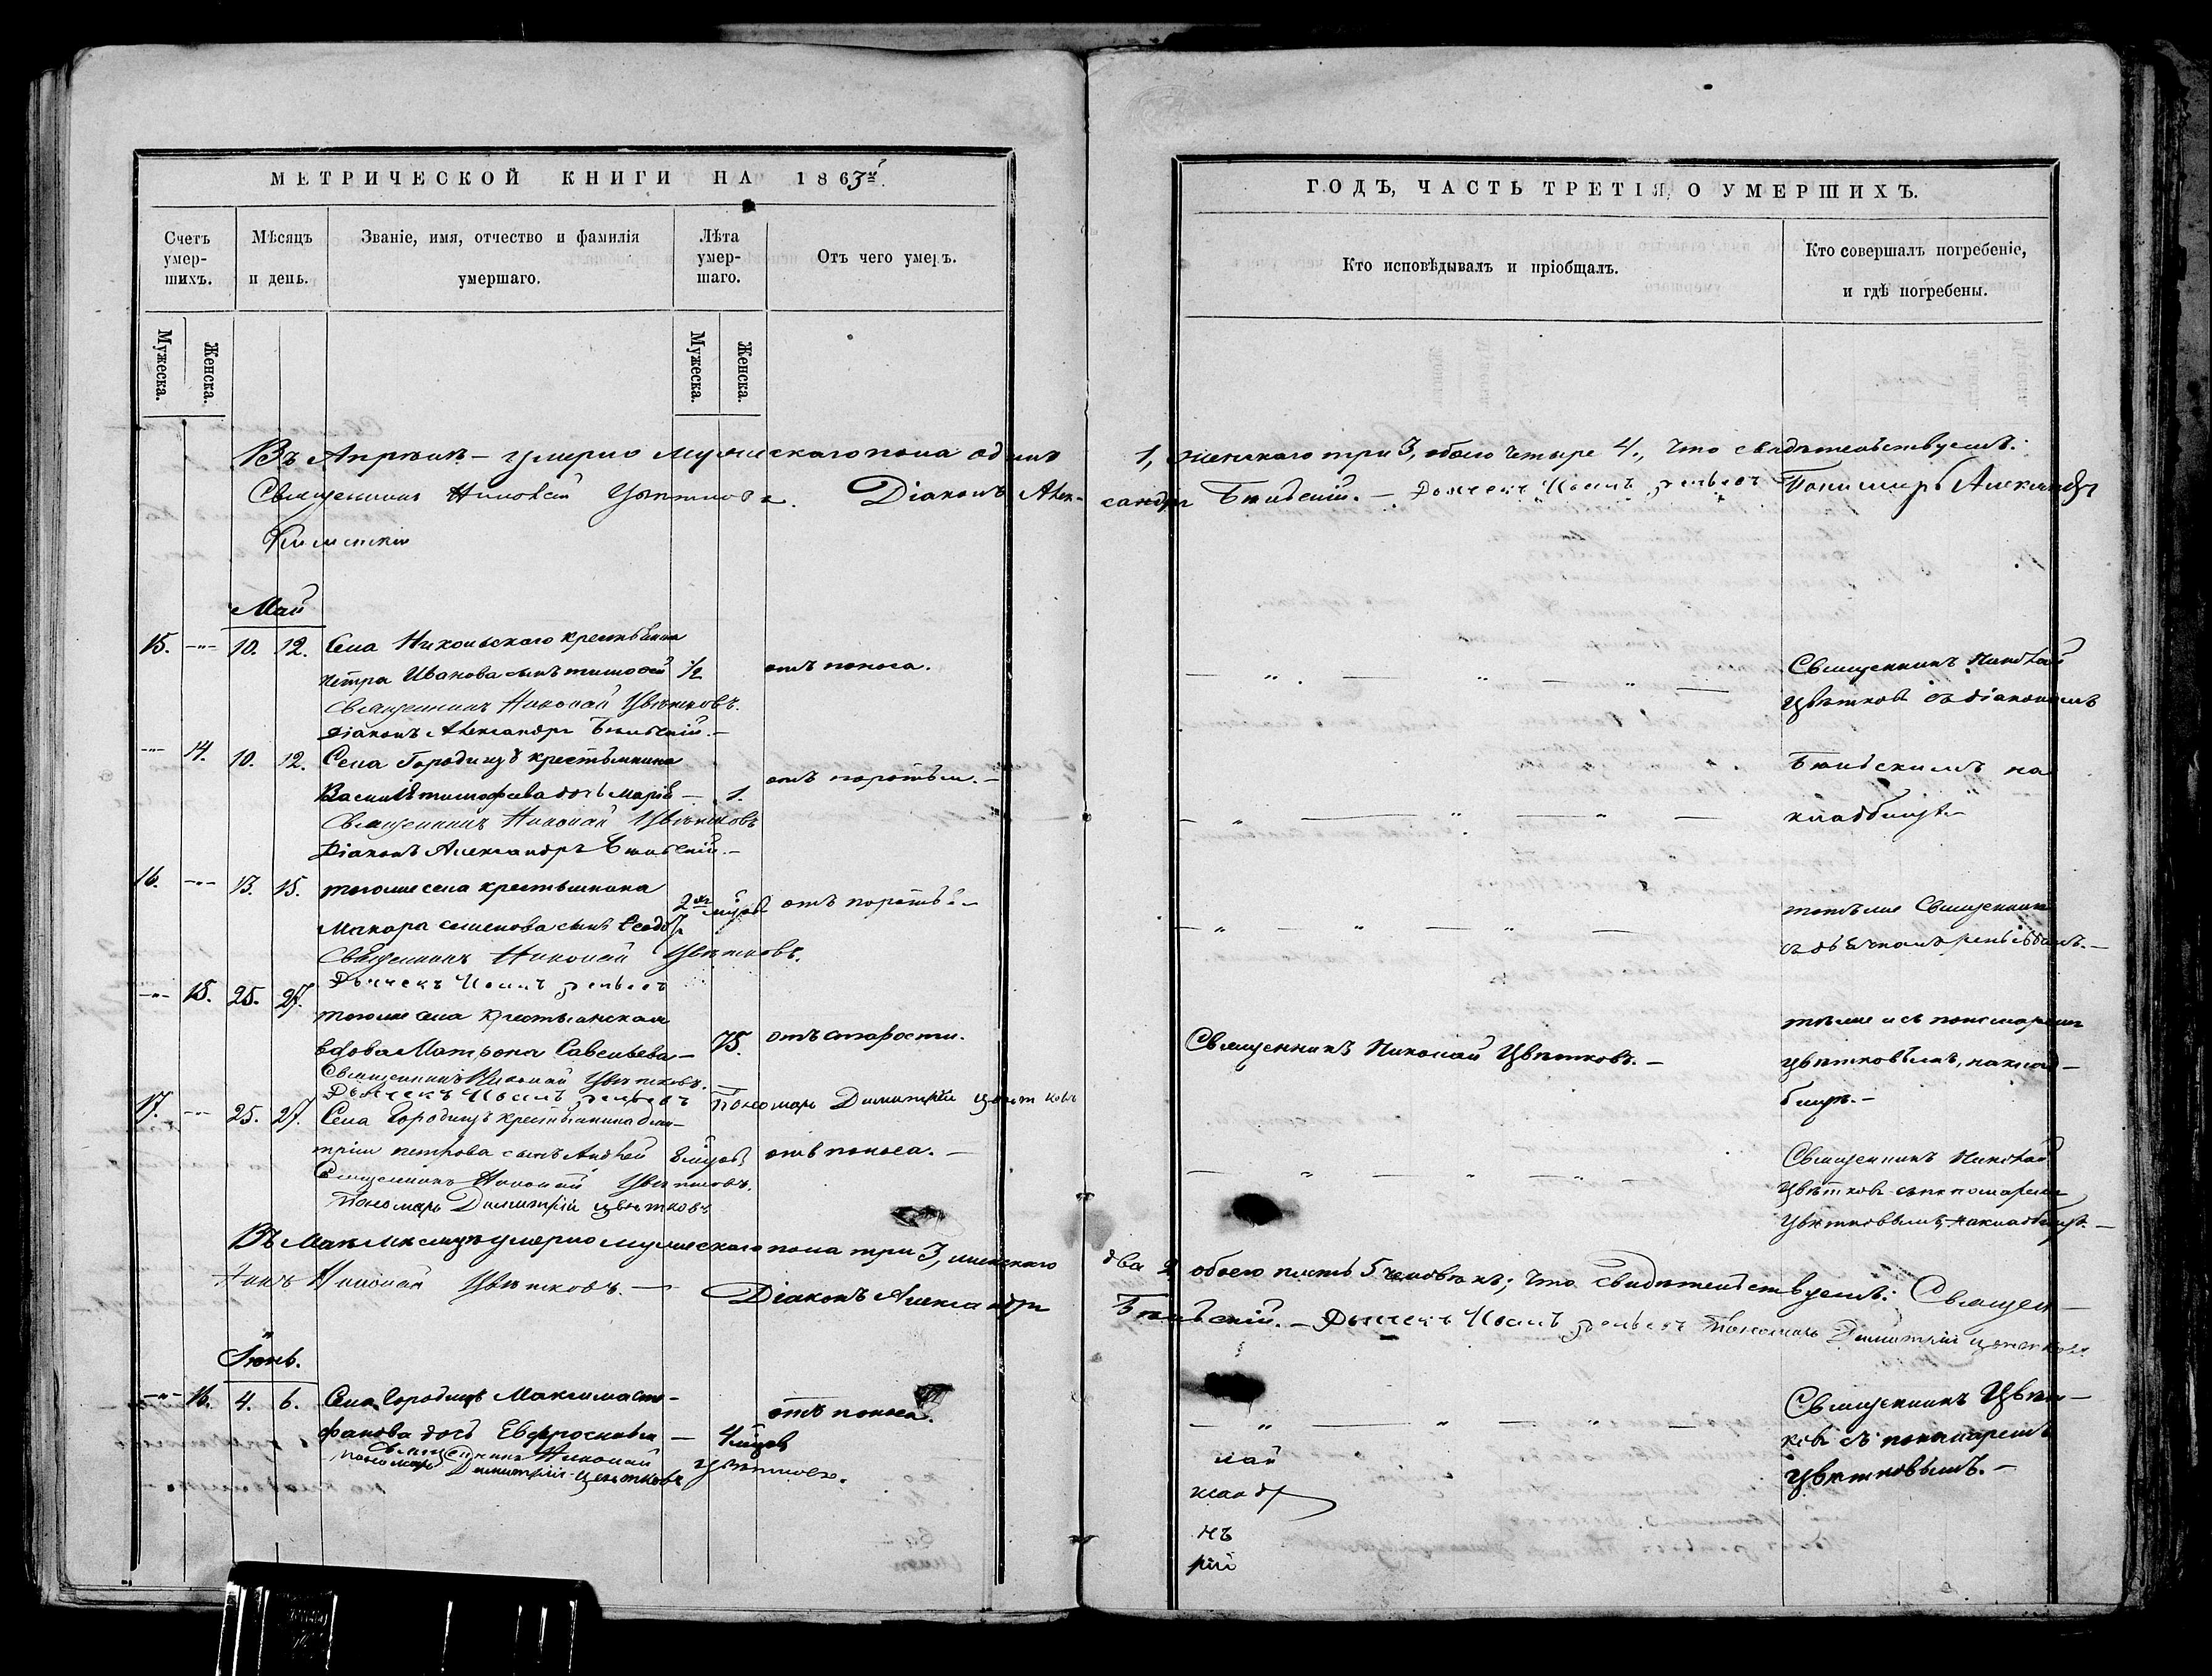 МЕТРИЧЕСКОЙ КНИГИ НА 1863й.
Счетъ умер-шихъ.
Мѣсяцъ и день.
Званіе, имя, отчество и фамилія умершаго.
Лѣта умер-шаго.
Отъ чего умеръ.
Мужеска.
Женска.
Мужеска.
Женска.
Въ Апрѣлѣ – умерло мужескаго пола одинъ
Священникъ Николай Цвѣтковъ. Діаконъ Алек-
Май
15. –"– 10. 12. Села Никольскаго крестьянина
Петра Иванова сынъ Тимоѳей ½ отъ поноса.
Священникъ Николай Цвѣтковъ.
Діаконъ Александръ Бѣльскій.–
–"– 14. 10. 12. Села Городищъ крестьянина
Василія Тимофеева дочь Марія – 1. отъ горячки.–
Священникъ Николай Цвѣтковъ
Діаконъ Александръ Бѣльскій.–
16. –"– 13. 15. тогоже села крестьянина
Макара Семенова сынъ Ѳеодоръ 2хъ мѣсяц.
Священникъ Николай Цвѣтковъ.
Дьячекъ Іосифъ
–"– 15. 25. 27. тогоже села крестьянская
вдова Матрона Савельева – 75. отъ старости.
Священникъ Николай Цвѣтковъ.
Дьячекъ Іосифъ Пономарь Димитрій Цвѣтковъ
17. –"– 25. 27. Села Городищъ крестьянина Дми-
трія Петрова сынъ Андрей 8 мѣсяц отъ поноса.–
Священникъ Николай Цвѣтковъ.
Пономарь Димитрій Цвѣтковъ
Въ Маѣ мѣсяцѣ умерло мужескаго пола три 3, женскаго
никъ Николай Цвѣтковъ.– Діаконъ Александръ
Іюнь.
–"– 16. 4. 6. Села Городищъ Максима Сте-
фанова дочь Евфросинія – 4 мѣсяц отъ поноса.
Священникъ Николай Цвѣтковъ.
Пономарь Димитрій Цвѣтковъ
ГОДЪ, ЧАСТЬ ТРЕТІЯ, О УМЕРШИХЪ.
Кто исповѣдывалъ и пріобщалъ.
Кто совершалъ погребеніе, и гдѣ погребены.
1, женскаго три 3, обоего четыре 4., что свидѣтельствуемъ:
сандръ Бѣльскій.– Дьячекъ Іосифъ Пономарь Александръ
Священникъ Николай
Цвѣтковъ съ діакономъ
Бѣльскимъ на
кладбищѣ.–
тотъже Священникъ
съ дьячкомъ
Священникъ Николай Цвѣтковъ.–
тотъже и съ пономаремъ
Цвѣтковымъ, на клад-
бищѣ.–
Священникъ Николай
Цвѣтковъ съ пономаремъ
Цвѣтковымъ, на кладбищѣ.–
два 2 обоего пять 5 человѣкъ; что свидѣтельствуемъ: Священ-
Бѣльскій.– Дьячекъ Іосифъ Пономарь Димитрій Цвѣтковъ
Священникъ Цвѣт-
ковъ съ пономаремъ
Цвѣтковымъ.–
лай
ксандр
нъ
рій